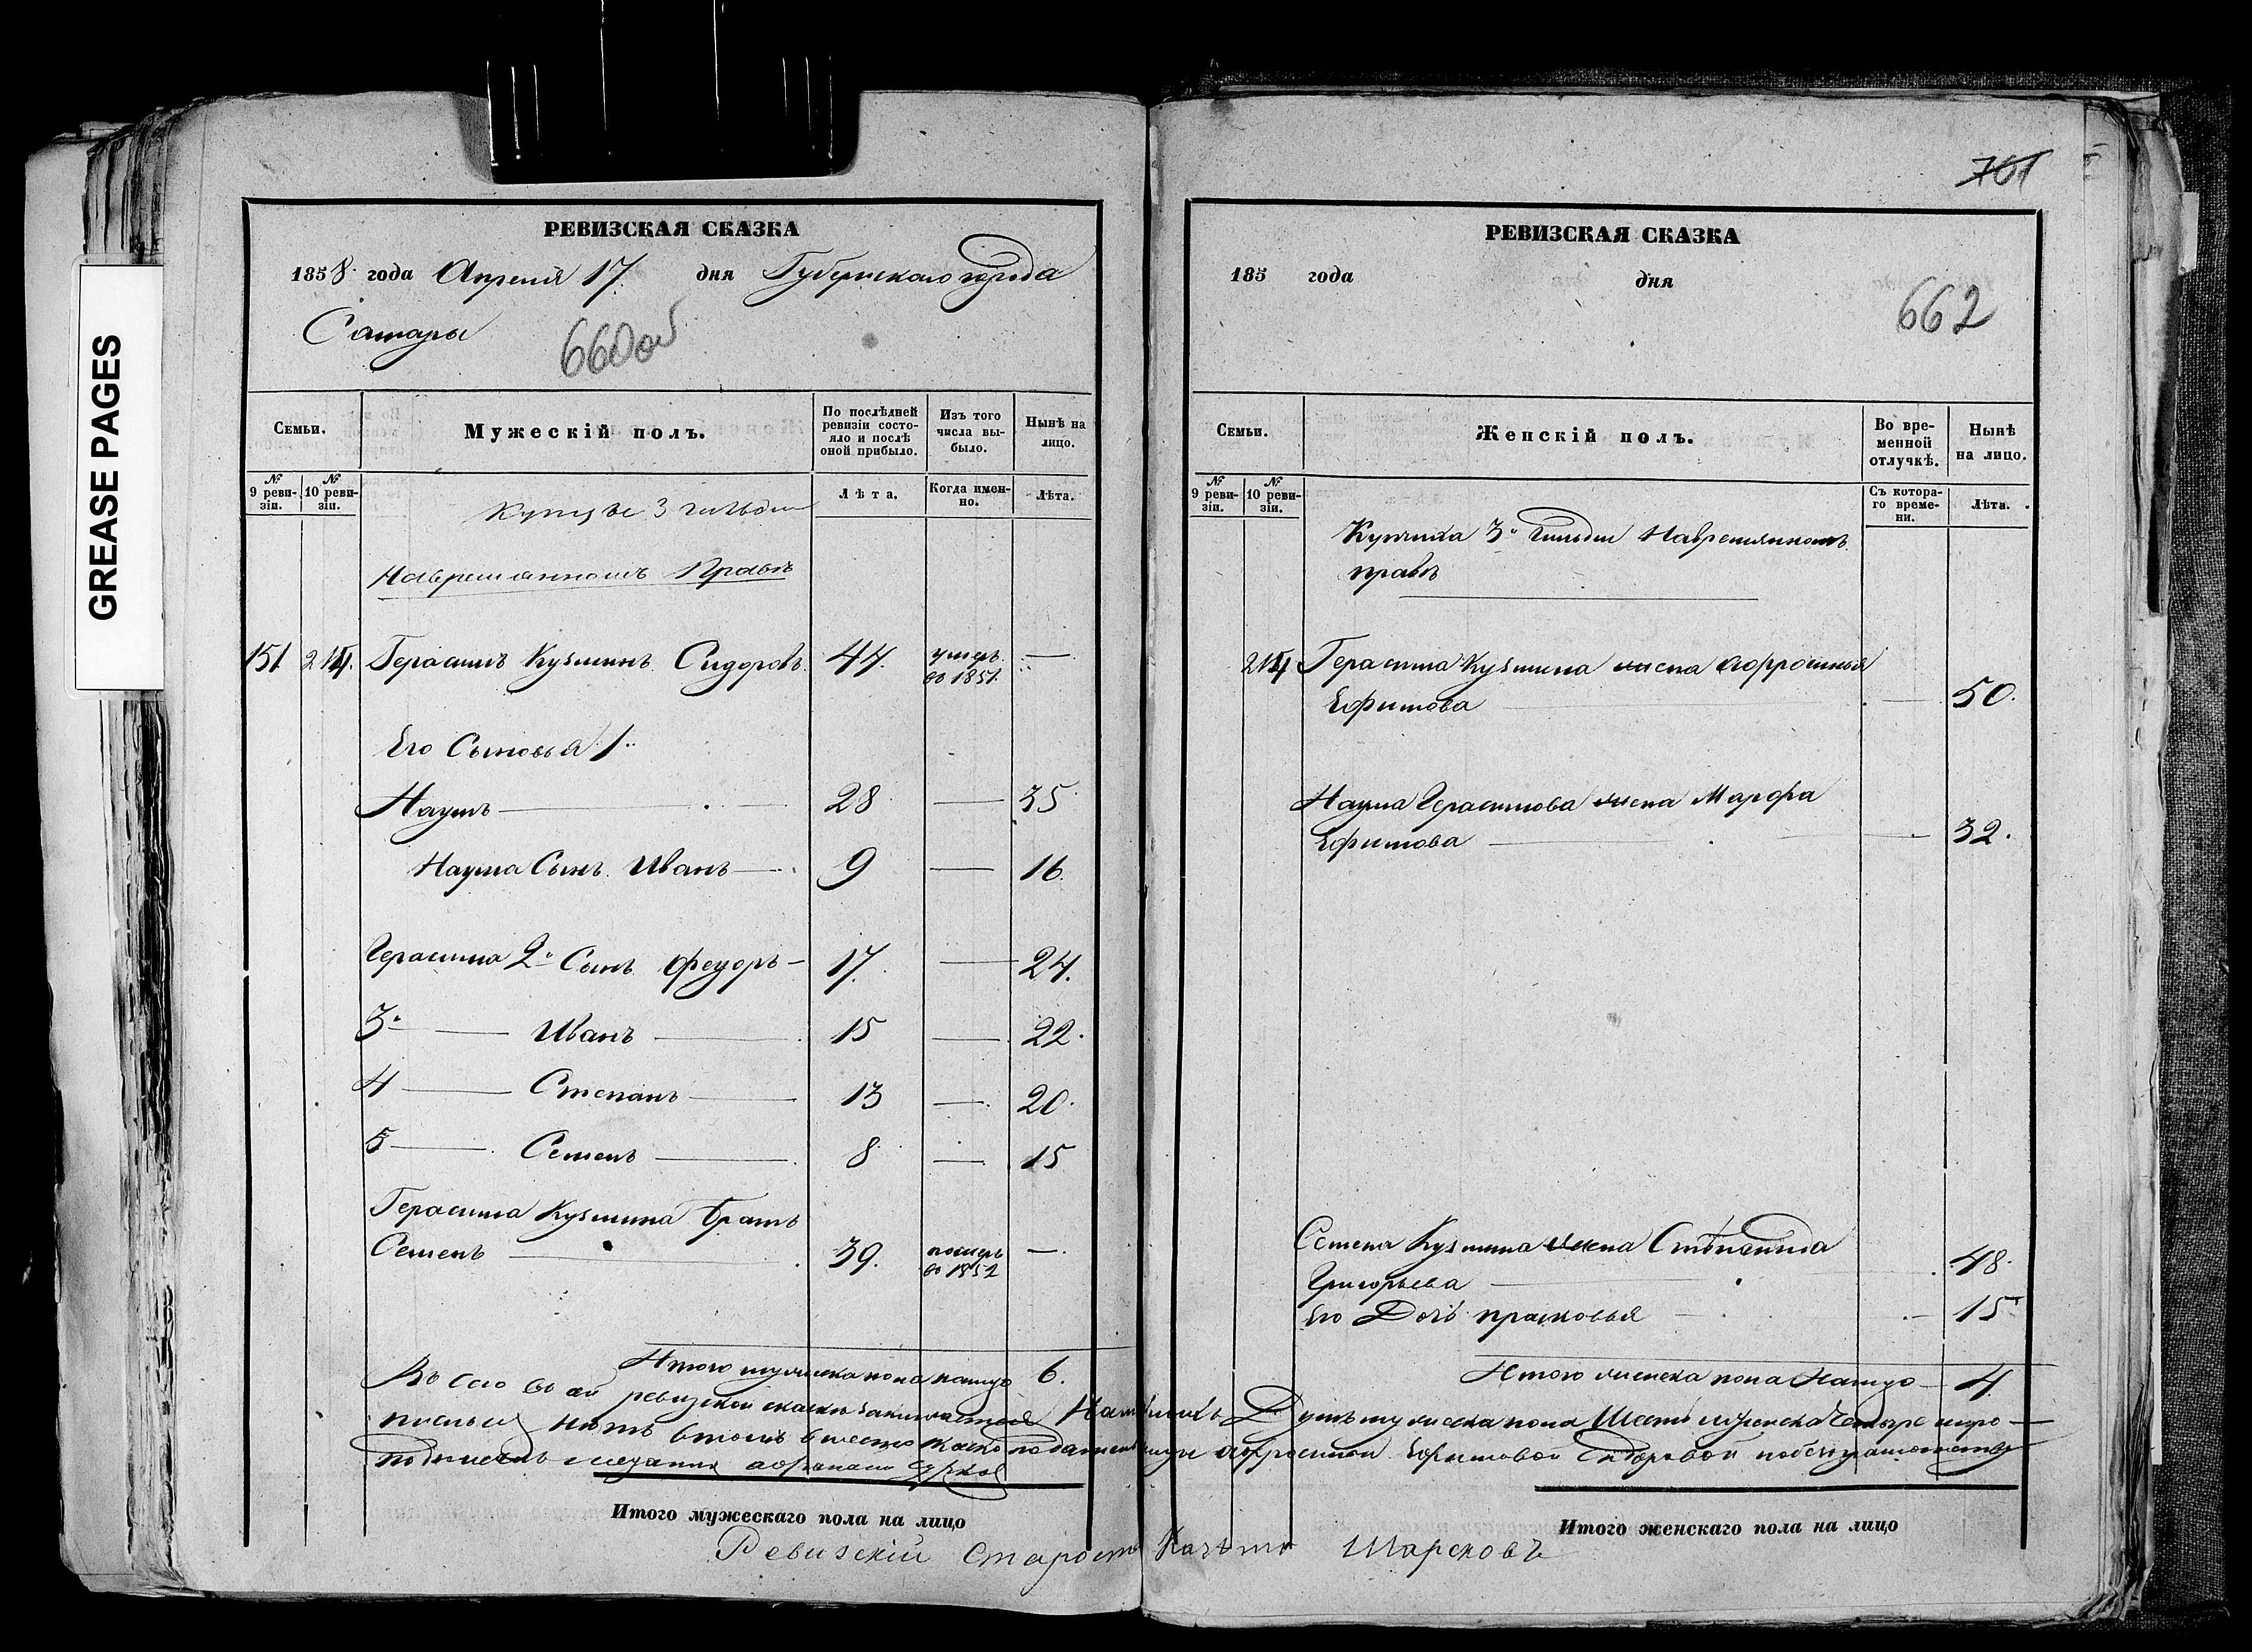 GREASE PAGES
РЕВИЗСКАЯ СКАЗКА
1858 года Апреля 17. дня Губернскаго города
Самары
660об
Семьи.
Мужескій полъ.
По послѣдней ревизіи состояло и послѣ оной прибыло.
Изъ того числа выбыло.
Нынѣ на лицо.
№ 9 ревизіи.
№ 10 ревизіи.
Лѣта.
Когда именно.
Лѣта.
Купцы 3 гильдии
На временномъ Правѣ
151 214. Герасимъ Кузминъ Сидоровъ. 47. умеръ во 1851. —
Его Сыновья 1й
Наумъ — 28 — 35
Наума Сынъ Иванъ — 9 — 16.
Герасима 2й Сынъ Федоръ — 17. — 24.
3й — Иванъ — 15 — 22.
4 — Степанъ — 13 — 20.
5 — Семенъ — 8 — 15
Герасима Кузмина Братъ
Семенъ — 39. померъ во 1852 —
Итого мужеска пола налицо 6.
701
РЕВИЗСКАЯ СКАЗКА
185 года дня
662
Семьи.
Женскій полъ.
Во временной отлучкѣ.
Нынѣ на лицо.
№ 9 ревизіи.
№ 10 ревизіи.
Съ котораго времени.
Лѣта.
Купчиха 3й Гильдии На временномъ
правѣ
214 Герасима Кузмина жена Афросинья
Ефимова — 50.
Наума Герасимова жена Марфа
Ефимова — 32.
Семена Кузмина жена Степанида
Григорьева — 48.
Его Дочь прасковья — 15
Итого женска пола Налицо — 4
Въ сею во ей ревизской сказки заключается Наличныхъ Душъ мужеска пола Шесть женска Четыре
нѣтъ втомъ вместо Афросиньи Ефимовой Сидоровой
подписалъ мещанин
Итого мужескаго пола на лицо
Итого женскаго пола на лицо
Ревизскій Староста Шарсковъ